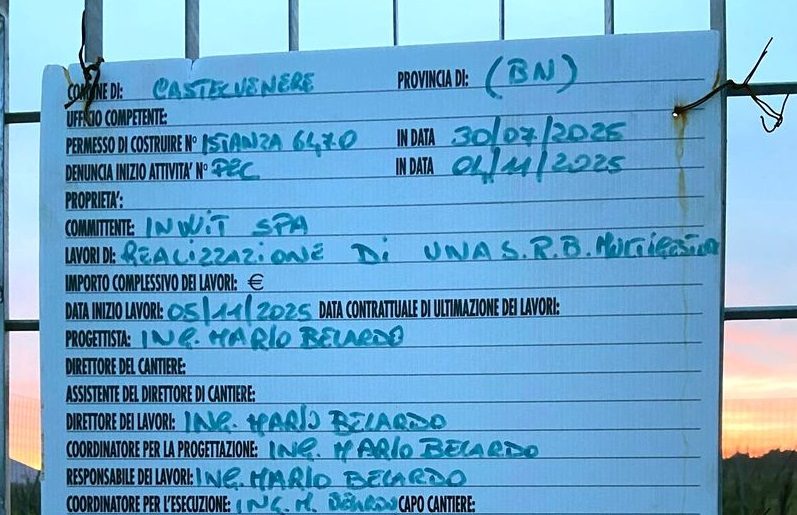 COMUNE DI: CASTELVENERE PROVINCIA DI: (BN)
UFFICIO COMPETENTE:
PERMESSO DI COSTRUIRE N° ISTANZA 6470 IN DATA 30/07/2025
DENUNCIA INIZIO ATTIVITA' N° PEC IN DATA 04/11/2025
PROPRIETA':
COMMITTENTE: INWIT SPA
LAVORI DI: REALIZZAZIONE DI UNA S.R.B. MULTIGESTORE
IMPORTO COMPLESSIVO DEI LAVORI: €
DATA INIZIO LAVORI: 05/11/2025 DATA CONTRATTUALE DI ULTIMAZIONE DEI LAVORI:
PROGETTISTA: ING. MARIO BELARDO
DIRETTORE DEL CANTIERE:
ASSISTENTE DEL DIRETTORE DI CANTIERE:
DIRETTORE DEI LAVORI: ING. MARIO BELARDO
COORDINATORE PER LA PROGETTAZIONE: ING. MARIO BELARDO
RESPONSABILE DEI LAVORI: ING. MARIO BELARDO
COORDINATORE PER L'ESECUZIONE: ING. M. BELARDO CAPO CANTIERE: